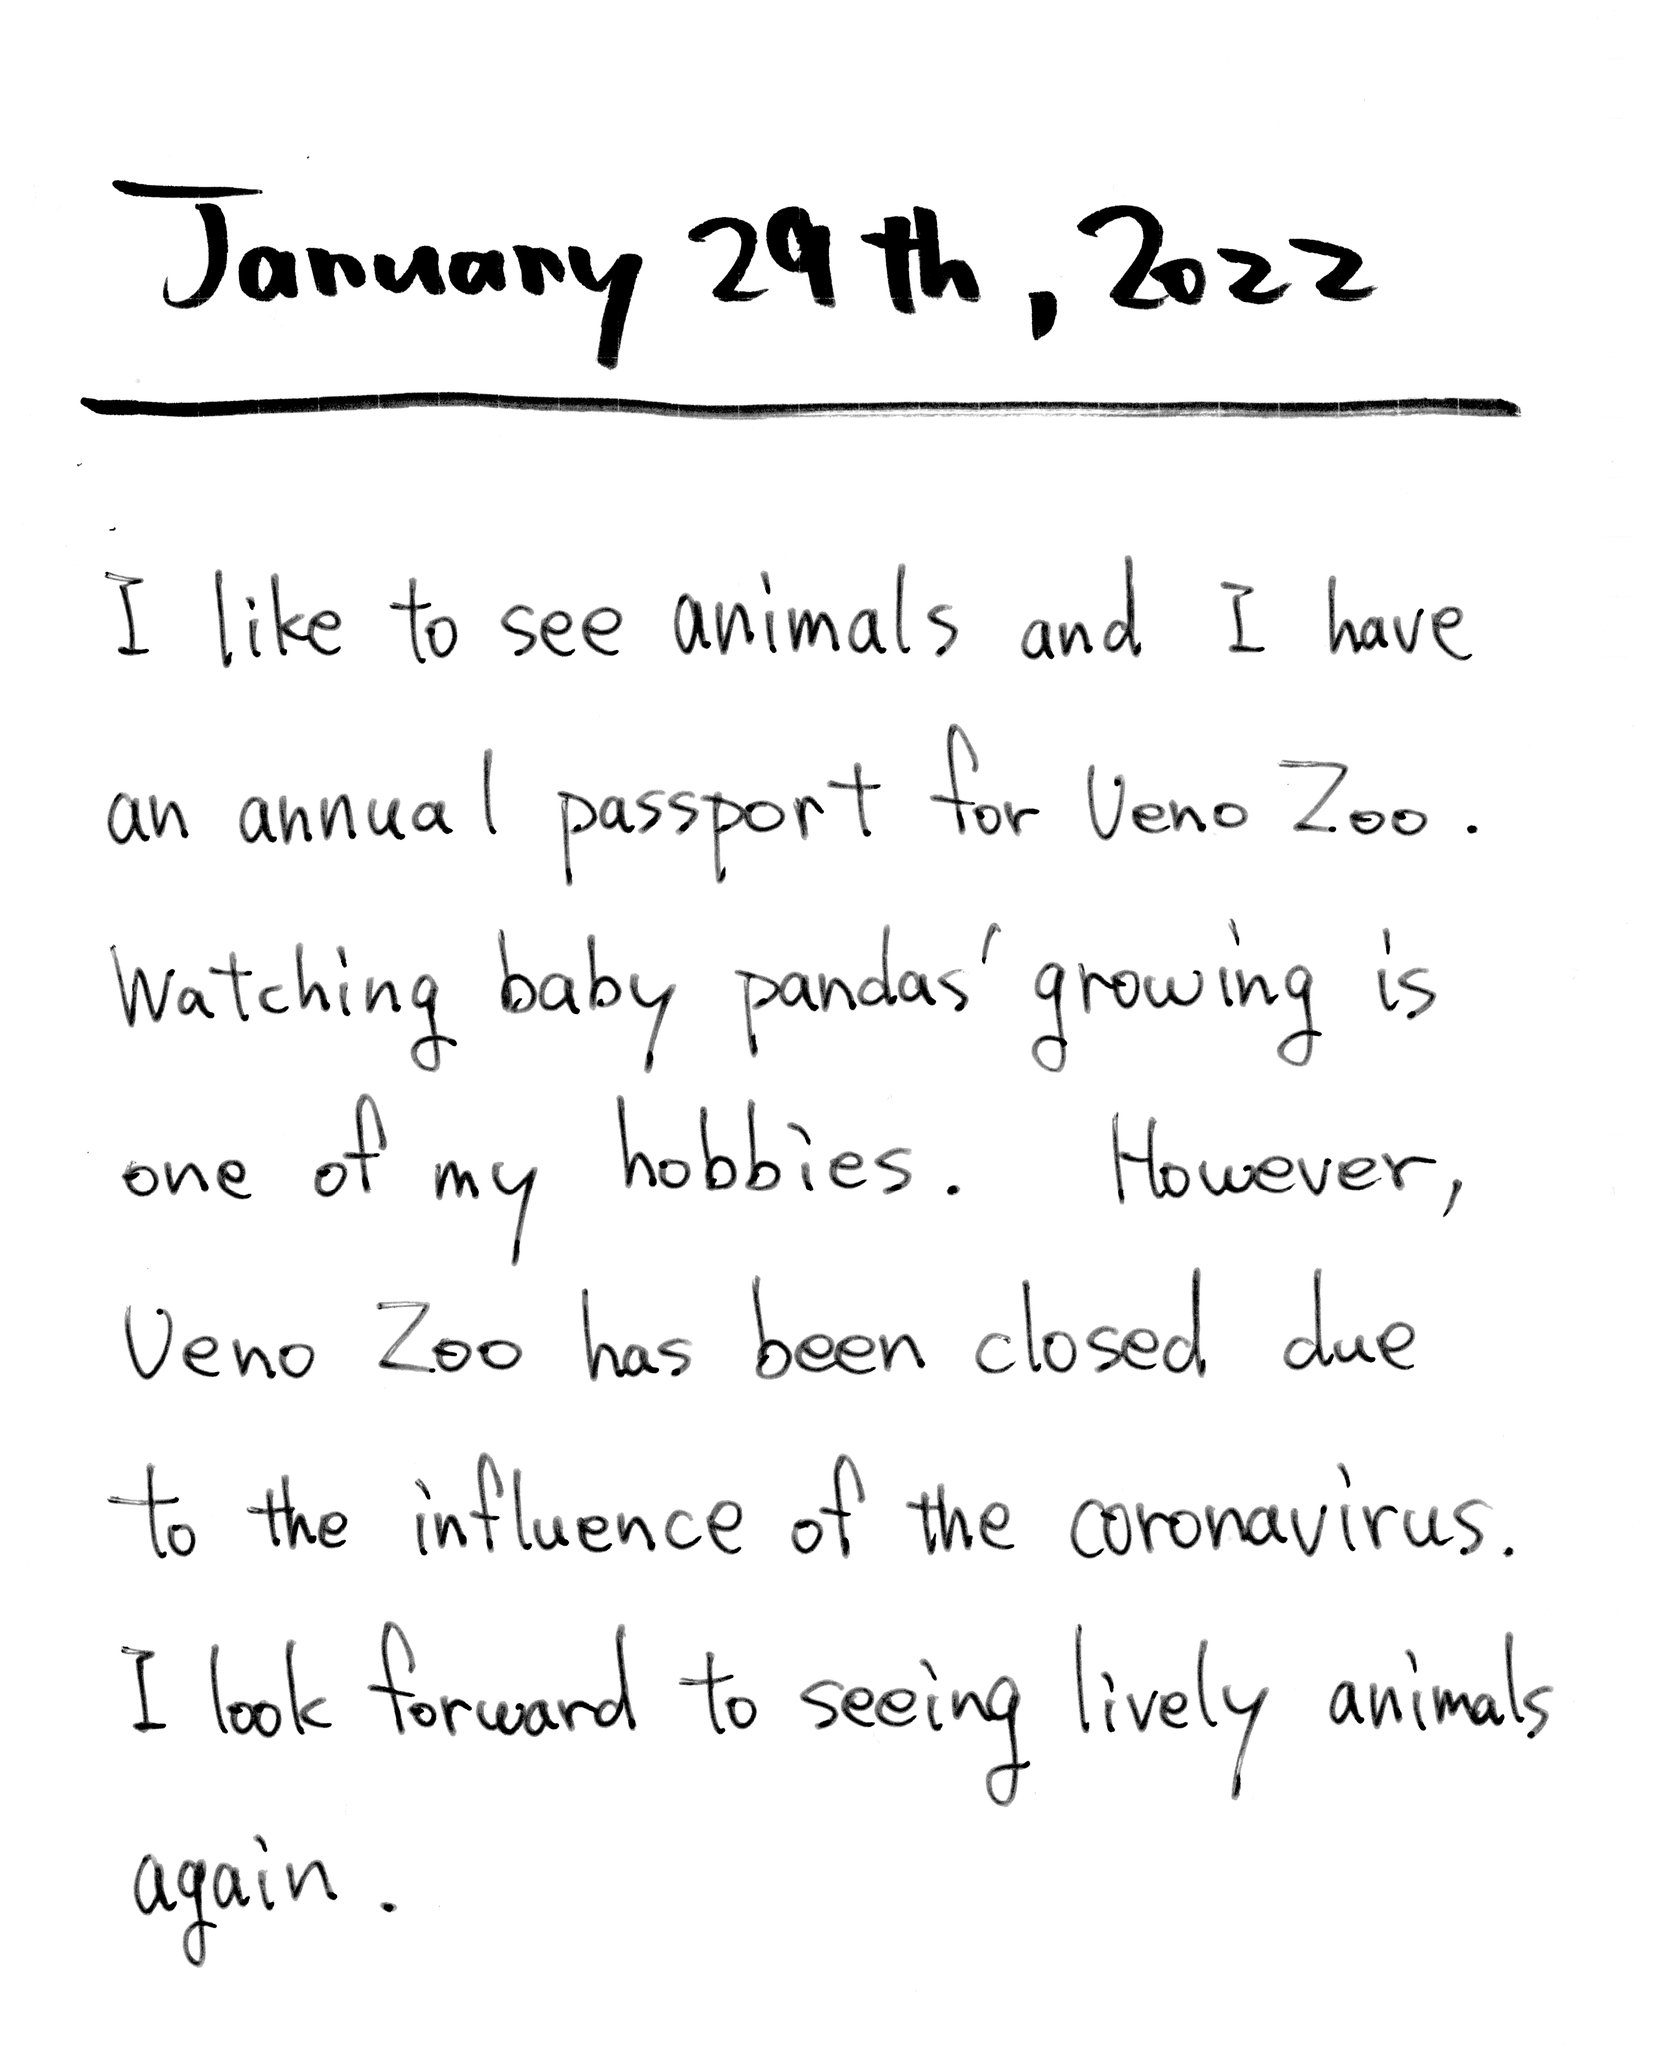 January 29th, 2022
I like to see animals and I have
an annual passport for Ueno Zoo.
Watching baby pandas' growing is
one of my hobbies. However,
Ueno Zoo has been closed due
to the influence of the coronavirus.
I look forward to seeing lively animals
again.